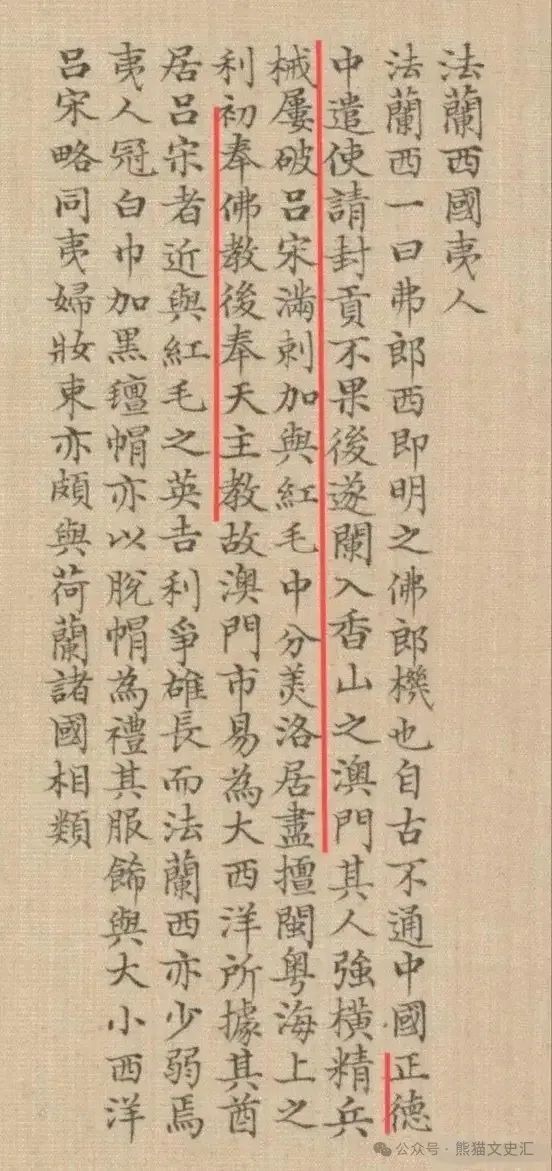 法蘭西國夷人
法蘭西一曰弗郎西即明之佛郎機也自古不通中國正德
中遣使請封貢不果後遂闌入香山之澳門其人強橫精兵
械屢破呂宋滿剌加與紅毛中分羙洛居盡擅閩粵海上之
利初奉佛教後奉天主教故澳門市易為大西洋所據其酋
居呂宋者近與紅毛之英吉利爭雄長而法蘭西亦少弱焉
夷人冠白巾加黑氊帽亦以脫帽為禮其服飾與大小西洋
呂宋略同夷婦妝束亦頗與荷蘭諸國相類
公众号·熊猫文史汇